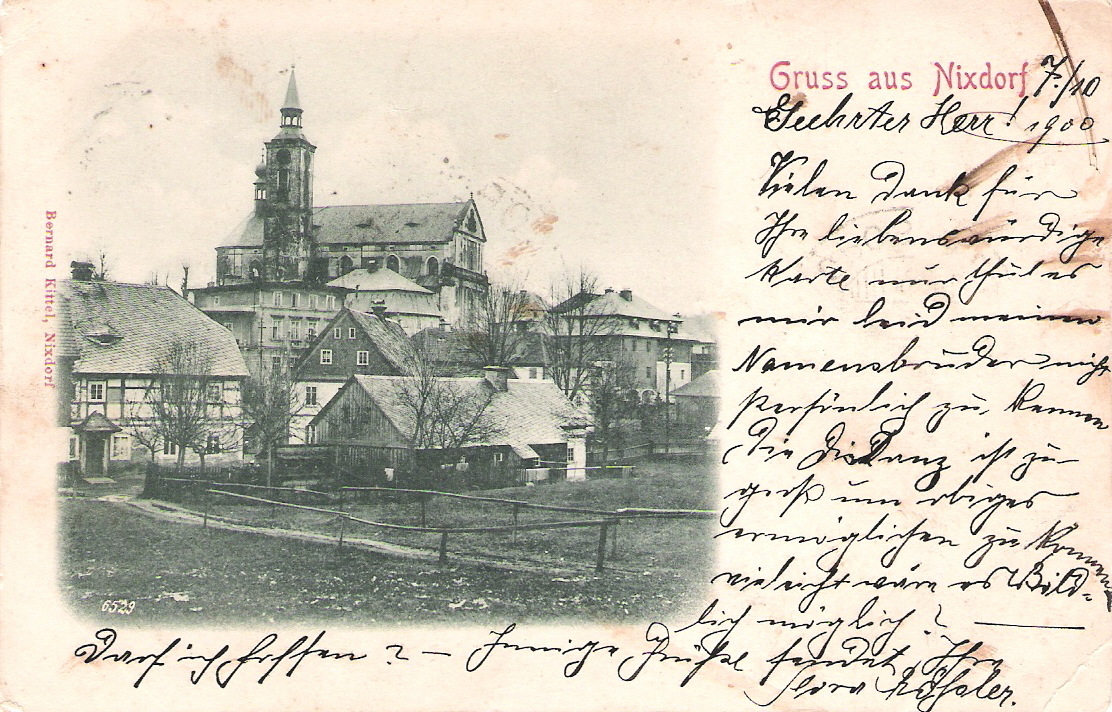 Gruss aus Nixdorf 7./10
Geehrter Herr! 1900
Vielen Dank für
Ihre liebenswürdige
Karte nur thut es
mir leid meinen
Namensbruder nicht
persönlich zu kennen
Die Distanz ist zu
groß um obiges
ermöglichen zu können
vieleicht wäre es Bild-
lich möglich? —
Darf ich hoffen? — Innige Grüße sendet Ihre
Flora
Bernard Kittel, Nixdorf
6529